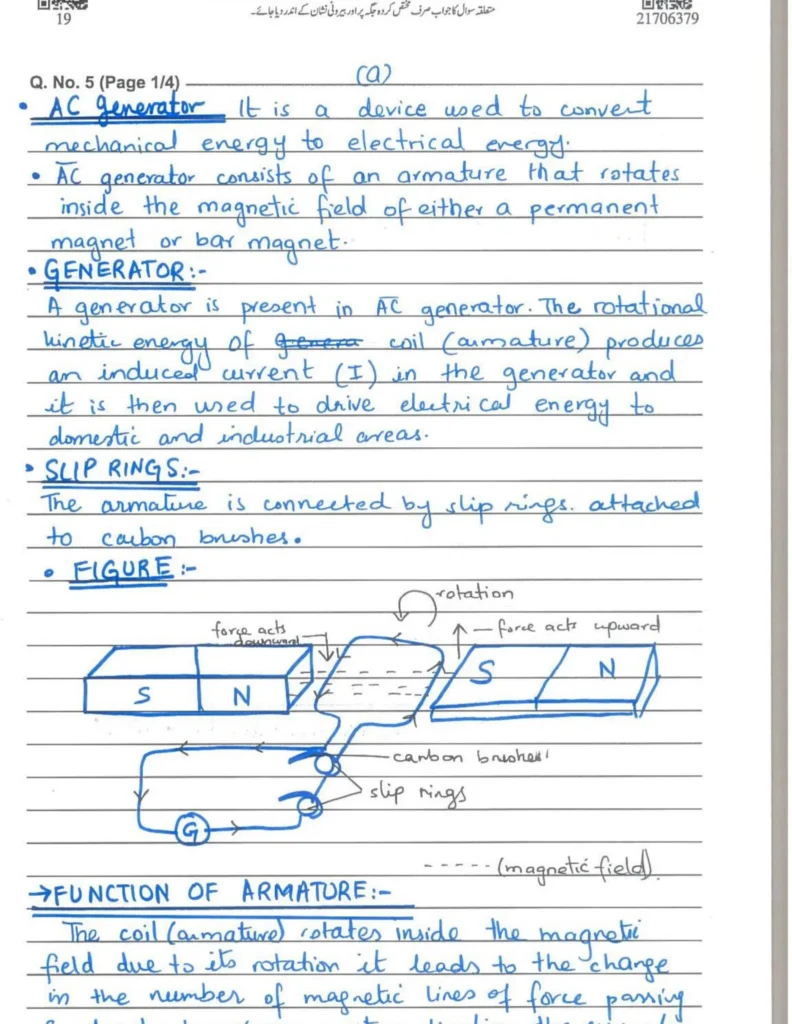 19
متعلقہ سوال کا جواب صرف مختص کردہ جگہ پر اور بیرونی نشان کے اندر دیا جائے۔
21706379
Q. No. 5 (Page 1/4)
(a)
• AC generator It is a device used to convert
mechanical energy to electrical energy.
• AC generator consists of an armature that rotates
inside the magnetic field of either a permanent
magnet or bar magnet.
• GENERATOR:-
A generator is present in AC generator. The rotational
kinetic energy of genera coil (armature) produces
an induced current (I) in the generator and
it is then used to drive electrical energy to
domestic and industrial areas.
• SLIP RINGS:-
The armature is connected by slip rings. attached
to carbon brushes.
• FIGURE:-
rotation
force acts
downward
force acts upward
S N
S N
carbon brushes
slip rings
G
----- (magnetic field).
→FUNCTION OF ARMATURE:-
The coil (armature) rotates inside the magnetic
field due to its rotation it leads to the change
in the number of magnetic lines of force passing